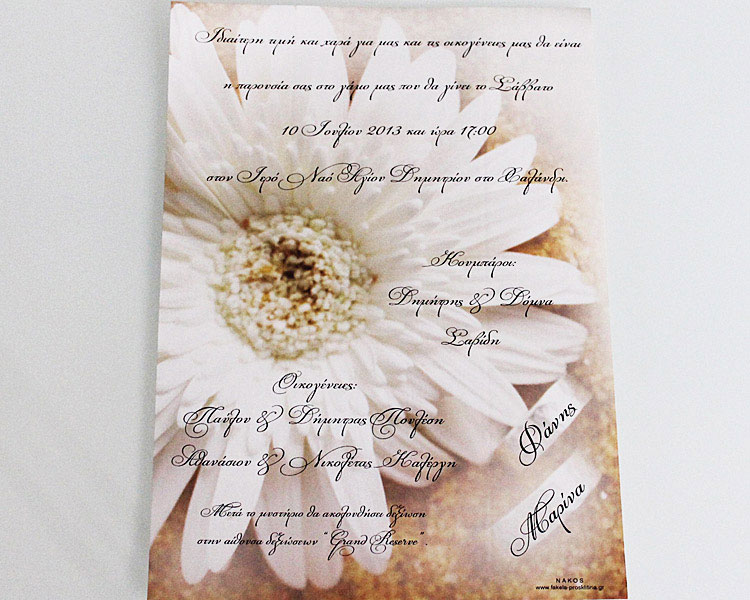 Ιδιαίτερη τιμή και χαρά για μας και τις οικογένειες μας θα είναι
η παρουσία σας στο γάμο μας που θα γίνει το Σάββατο
10 Ιουλίου 2013 και ώρα 17:00
στον Ιερό Ναό Αγίου Δημητρίου στο Χαλάνδρι.
Κουμπάροι:
Δημήτρης & Δόμνα
Σαβίδη
Οικογένειες:
Παύλου & Δήμητρας Πουλέση
Αθανάσιου & Νικολέτας Καλέργη
Φάνης
Μαρίνα
Μετά το μυστήριο θα ακολουθήσει δεξίωση
στην αίθουσα δεξιώσεων "Grand Reserve".
NAKOS
www.fakela-prosklitiria.gr